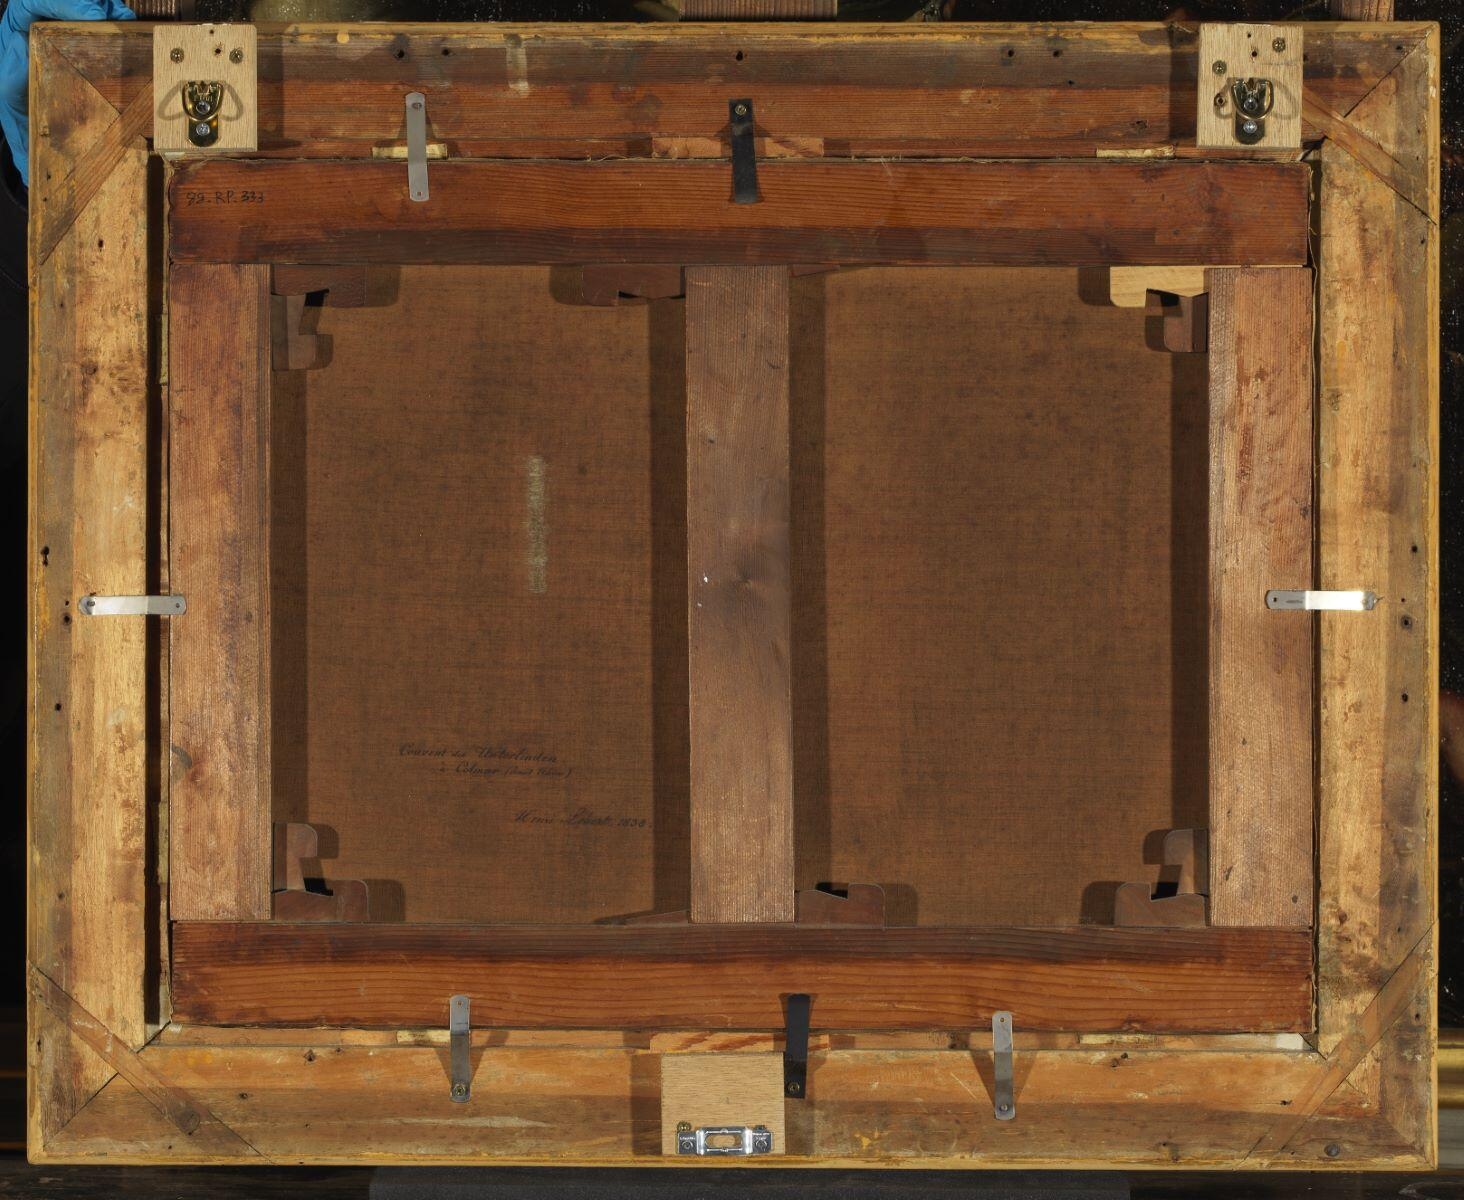 99.RP.333
Couvent des Unterlinden
à Colmar (haut Rhin)
Henri Lebert. 1838.